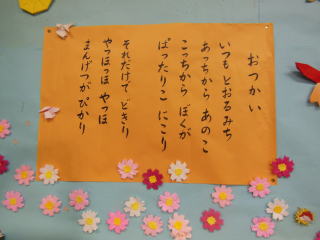 おつかい
いつもとおるみち
あっちから あのこ
こっちから ぼくが
ばったりこ にこり
それだけで どきり
やっほっほ やっほ
まんげつが ぴかり